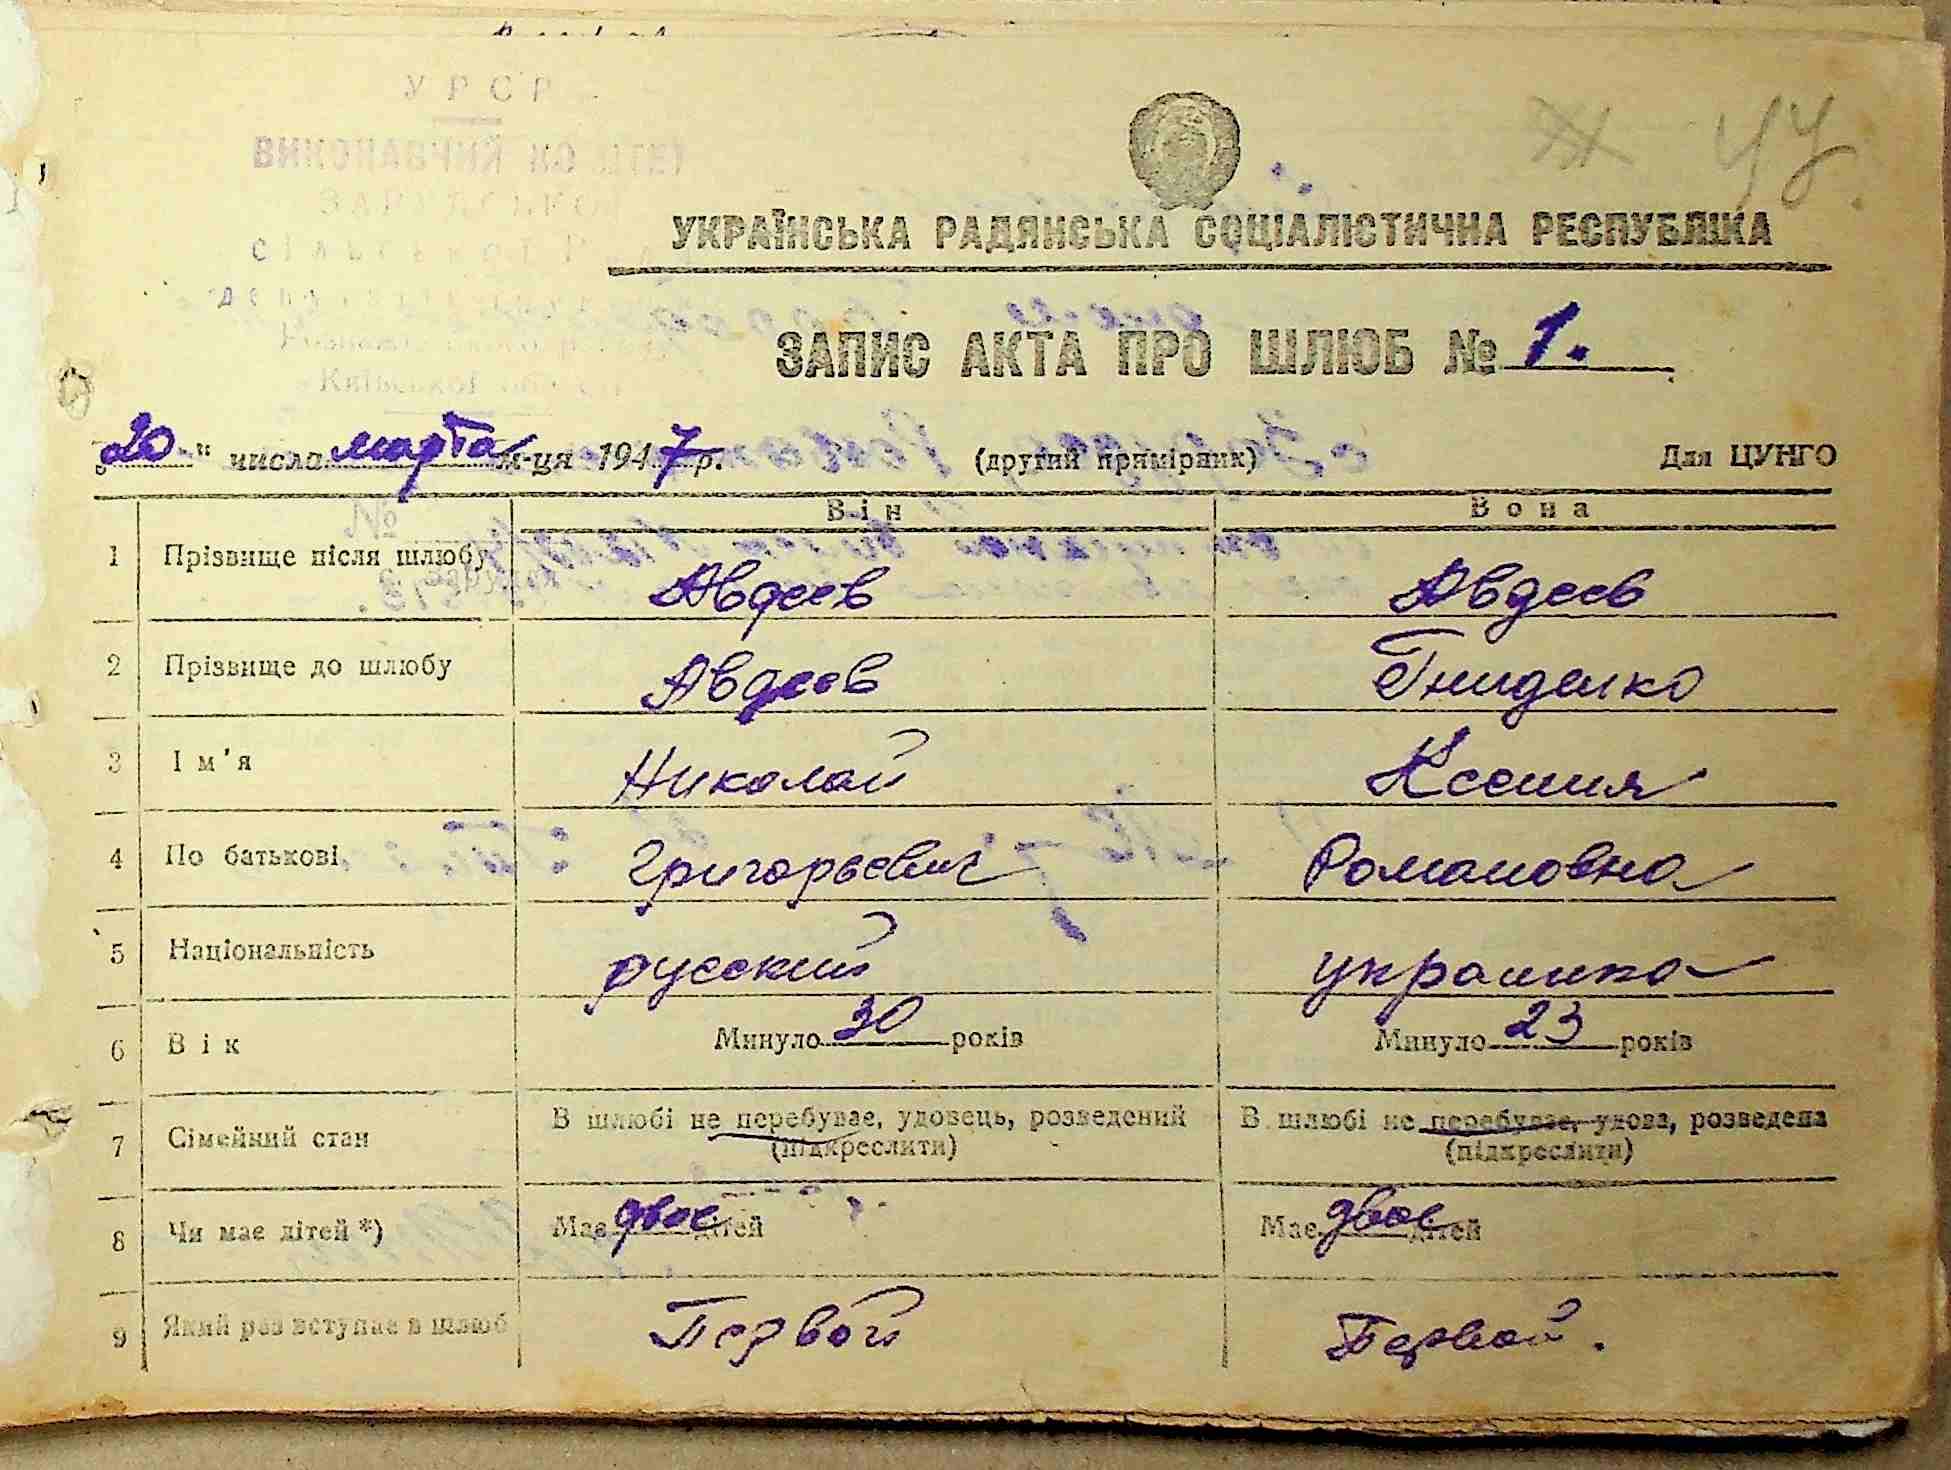 УРСР
ВИКОНАВЧИЙ КОМІТЕТ
СІЛЬСЬКОЇ РАДИ
Київської
44.
УКРАЇНСЬКА РАДЯНСЬКА СОЦІАЛІСТИЧНА РЕСПУБЛІКА
ЗАПИС АКТА ПРО ШЛЮБ № 1.
„20" числа марта м-ця 1947 р. (другий примірник) Для ЦУНГО
Він Вона
1 Прізвище після шлюбу Авдеев Авдеев
2 Прізвище до шлюбу Авдеев Гниденко
3 Ім'я Николай Ксения
4 По батькові Григорьевич Романовна
5 Національність русский украинка
6 Вік Минуло 30 років Минуло 23 років
7 Сімейний стан В шлюбі не перебуває, удовець, розведений (підкреслити) В шлюбі не перебуває, удова, розведена (підкреслити)
8 Чи має дітей *) Має двое дітей Має двое дітей
9 Який раз вступає в шлюб Первой Первой.